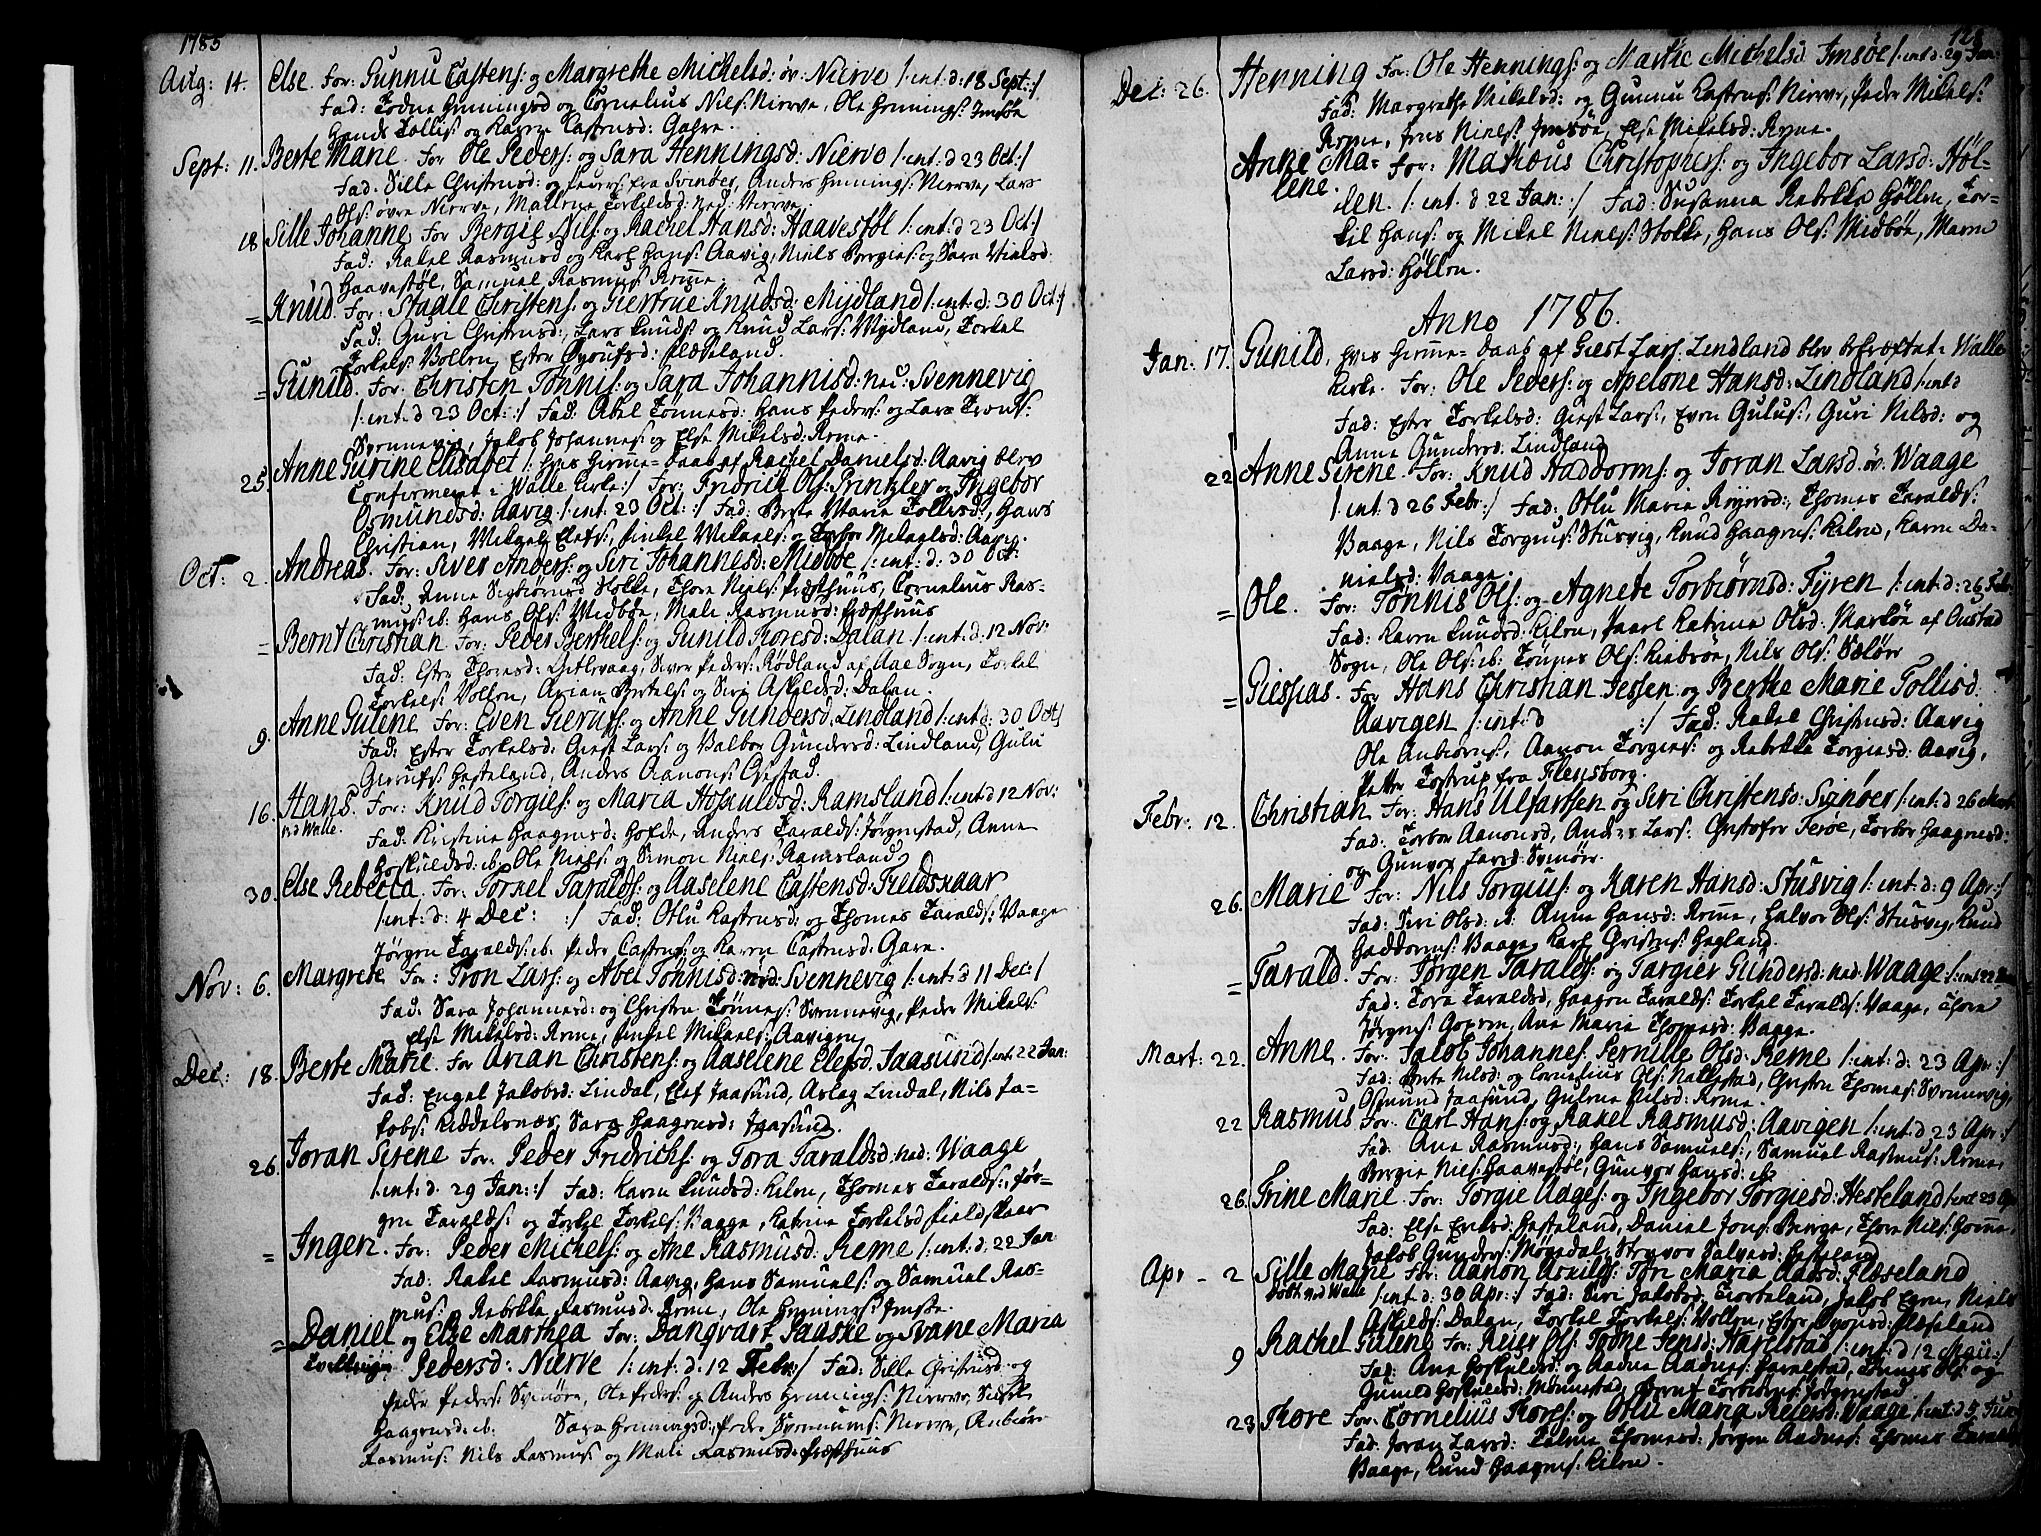 1785
Aug: 14. Else. For: Gunnu Castens: og Margrethe Mickelsd: øv: Nierve /: int: d: 18 Sept: /
Fad: Todne Henningsd og Cornelius Niels: Nierve, Ole Hennings: Imsöe
Hans Tollis: og Karen Castensd: Gahre.
Sept: 11. Berte Marie. For Ole Peders: og Sara Henningsd: Niervo /: int: d 23 Oct: /
Fad: Sille Christensd: og Peders: fra Svinöer, Anders Hennings: Nierve, Lars
Ols: øvre Nierve, Mallene Torkelsd: ned: Nierve.
18 Sille Johanne For Bergie Nils: og Rachel Hansd: Haavestøl /: int: d 23 Oct: /
Fad: Rakel Rasmusd og Karl Hans: Aavig, Niels Bergies: og Sara Nielsd:
Haavestöl, Samuel Rasmus: Reme.
= Knud. For: Staale Christens: og Giertrue Knudsd: Mydland /: int: d: 30 Oct: /
Fad: Guri Christensd:, Lars Knuds: og Knud Lars: Mydland, Torkel
Torkels: Vollen, Ester Fleseland.
= Gunild. For: Christen Tönnis: og Sara Johannisd: ned: Svennevig
/: int: d 23 Oct: :/ Fad: Abel Tönnesd: Hans Peders: og Lars Trons:
Svennevig, Jakob Johannes: og Else Mikelsd: Reme.
25. Anne Gurine Elisabet /: hvis Hiemme-Daab af Rachel Danielsd: Aavig blev
Confirmeret i Walle Kirke :/ For: Fridrich Ols: Printzler og Ingebor
Osmundsd: Aavig /: int: 23 Oct: :/ Fad: Berte Marie Tollisd:, Hans
Christian, Mikael Elefs:, Mikaels: og Torbor Mikaelsd: Aavig.
Oct: 2. Andreas. For: Siver Anders: og Siri Johannesd: Midböe /: int: d: 30 Oct:
Fad: Anna Sigbiörnsd Stokke, Thore Niels: Præsthuus, Cornelius Ras-
mus: ib: Hans Ols: Midböe, Mali Rasmusd: Præsthuus
= Bernt Christian For: Peder Berthels: og Gunild Thoresd: Dalan /: int: d: 12 Nov:
Fad: Ester Thomesd: Getlevaag, Siver Peders: Rödland af Aae Sogn, Torkel
Torkels: Vollen, Arian Bertels: og Siri Askeldsd: Dalan.
9. Anne Gulene For: Even Gierufs: og Anne Gundersd: Lindland /: int: d: 30 Oct: /
Fad: Ester Torkelsd: Giest Lars: og Valbor Gundersd: Lindland, Gulu
Gierufs: Hesteland, Anders Aanons:
16. Hans. For: Knud Torgies: og Maria Hoskuldsd: Ramsland /: int: d 12 Nov:
ved Walle.
Fad: Kirstine Haagensd: Hofde, Anders Taralds: Jörgenstad, Anne
Hoskuldsd: ib: Ole Niels: og Simon Niels: Ramsland
30. Else Rebecca. For: Torkel Taralds: og Aaselene Castensd: Fieldskaar
/: int: d: 4 Dec: :/ Fad: Otlu Castensd: og Thomes Taralds: Vaage
Jörgen Taralds: ib: Peder Castens: og Karen Castensd: Gare.
Nov: 6. Margrete For: Tron Lars: og Abel Tönnisd: ned: Svennevig /: int: d 11 Dec: /
Fad: Sara Johannesd: og Christen Tönnes: Svennevig, Peder Mikels:
og Else Mikelsd: Reme, Mikaels: Aavigen
Dec: 18. Berte Marie. For Arian Christens: og Aaselene Elefsd. Jaasund /: int: 22 Jan:
Fad: Engel Jakobsd: Lindal, Elef Jaasund, Aslag Lindal, Nils Ja-
kobs: Kiddelsnæs, Sara Haagensd: Jaasund.
26. Joran Serene For: Peder Fridrichs: og Tora Taraldsd: ned: Waage
/: int: d. 29 Jan: :/ Fad: Karen Knudsd: Kilen, Thomes Taralds:, Jör-
gen Taralds: og Torkel Torkels: Vaage, Katrine Torkelsd Fieldskaar
= Ingeri. For: Peder Michels: og Ane Rasmusd: Reme /: int: d: 22 Jan:
Fad: Rakel Rasmusd: Aavig, Hans Samuels: og Samuel Ras-
mus: og Rebekka Rasmusd: Reme, Ole Hennings: Imsöe.
= Daniel og Else Marthea For: Danqvart Paaske og Svane Maria
Tvillinger Pedersd: Nierve /: int: d: 12 Febr: / Fad: Sille Christensd: og
Peder Peders: Svinöer, Ole Peders: og Anders Hennings: Nierve,
Haagensd: ib: Sara Henningsd:, Peder Nierve, Anbiör
Rasmus: Nils Rasmus: og Mali Rasmusd: Præsthuus
128
Dec: 26. Henning For: Ole Hennings: og Marthe Michelsd Imsöe /: int: d: 29 Jan:
Fad: Margrethe Mikelsd: og Gunnu Castens: Nierve, Peder Mikels:
Reme, Jens Niels: Imsöe, Else Mikelsd: Reme.
Anne Ma= For: Mathæus Christophers: og Ingebor Larsd: Höl-
lene. len. /: int: d 22 Jan: :/ Fad: Susanna Rebekka Höllen, Tor-
kil Hans: og Mikel Niels: Stokke, Hans Ols: Midböe, Maren
Larsd: Höllen.
Anno 1786.
Jan: 17. Gunild, hvis Hiemme-Daab af Giest Lars: Lindland blev bekræftet i Walle
Kirke. For: Ole Peders: og Apelone Hansd: Lindland /: int: d
Fad: Ester Torkelsd: Giest Lars:, Even Gulus:, Guri Nilsd: og
Anna Gundersd: Lindland
22 Anne Serene. For: Knud Haddorms: og Joran Larsd. øv: Waage
/: int: d 26 Febr: / Fad: Otlu Marie Reyersd:, Thomes Taralds:
Vaage, Nils Torgius: Stusvig, Knud Haagens: Kilen, Karen Da-
nielsd: Vaage.
= Ole. For: Tönnis Ols: og Agnete Torbiörnsd: Fyren /: int: d: 26 Febr:
Fad: Karen Knudsd: Kilen, Katrina Olsd: Marköe af Oustad
Sogn, Ole Ols: ib: Tönnes Ols: Revöe, Nils Ols: Sælör
= Giesias. For Hans Christian Jessen og Berthe Marie Tollisd:
Aavigen /: int: d :/ Fad: Rakel Christensd: Aavig
Ole Anbiörns:, Aanon Torgies: og Rebekka Torgiesd: Aavig,
Petter Tostrup fra Flensborg.
Febr: 12. Christian For: Hans Ulfartsen og Siri Christensd: Svinöer /: int: d 26 Mart:
Fad: Torbor Aanonsd, Anders Lars: Christofer Feröe, Torbor Haagensd:
og Gunvor Larsd: Svinöer.
26. Marie For: Nils Torgius: og Karen Hansd: Stusvig /: int: d: 9 Apr: /
Fad: Siri Olsd: ib: Anne Hansd: Reme, Halvor Ols: Stusvig, Knud
Haddorms: Vaage, Karl Christens: Hegland.
= Tarald. For: Jörgen Taralds: og Targier Gundersd: ned: Waage /: int 22
Fad: Tora Taraldsd, Haagen Taralds: Torkel Taralds: Vaage, Thore
Jörgens: Ane Marie Thomesd: Vaage.
Mart: 22. Anne. For: Jacob Johannes: Pernille Olsd: Reme /: int: d: 23 Apr: /
Fad: Berte Nilsd: og Cornelius Ols: Christen Thomes: Svennevig,
Osmund Jaasund, Gulene Nilsd: Reme.
22 Rasmus For: Carl Hans: og Rakel Rasmusd: Aavigen /: int: d 23 Apr: /
Fad: Ane Rasmusd:, Hans Samuels:, Samuel Rasmus: Reme,
Bergie Nils: Haavestöl, Gunvor Hansd: ib:
26. Trine Marie For: Torgie Aages: og Ingebor Torgiesd: Hesteland /: int 23 Apr:
Fad: Else Evensd: Hesteland, Daniel Jons: Berge, Thore Nils:
Jakob Gunders: Møgedal, Salvesd: Hesteland
Apr - 2 Sille Marie For: Aanon Askilds: Tori Maria Aadsd: Flæseland
Döbt ved Walle /: int: d: 30 Apr: :/ Fad: Siri Jakobsd: Jakob Niels
Askelds: Dalan, Torkel Torkels: Vollen, Ester Flæseland
9 Rachel Gulene For: Reier Ols: Todne Jensd: Harelstad /: int: d 12 Maii: /
Fad: Ane Hoskuldsd: og Aadne Aadnes: Harelstad, Tönnes Ols: og
Gunild Hoskuldsd: Mönnestad, Bernt Torbiörns: Jörgenstad
23 Thore For: Cornelius Thores: og Otlu Maria Reiersd: Waage /: int: d 5 Jun:
Fad: Joran Larsd: Thomesd: Jörgen Aadnes: Thomes Taralds:
Vaage, Knud Haagens: Kilen.